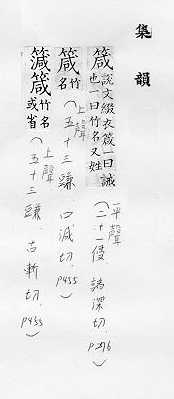 集韻
箴說文綴衣箴一曰誡也一曰竹名又姓
平聲
(二十一侵 諸深切 P276)
箴竹名
上聲
(五十三豏 口減切 P455)
䈼箴竹名或省
上聲
(五十三豏 古斬切 P455)